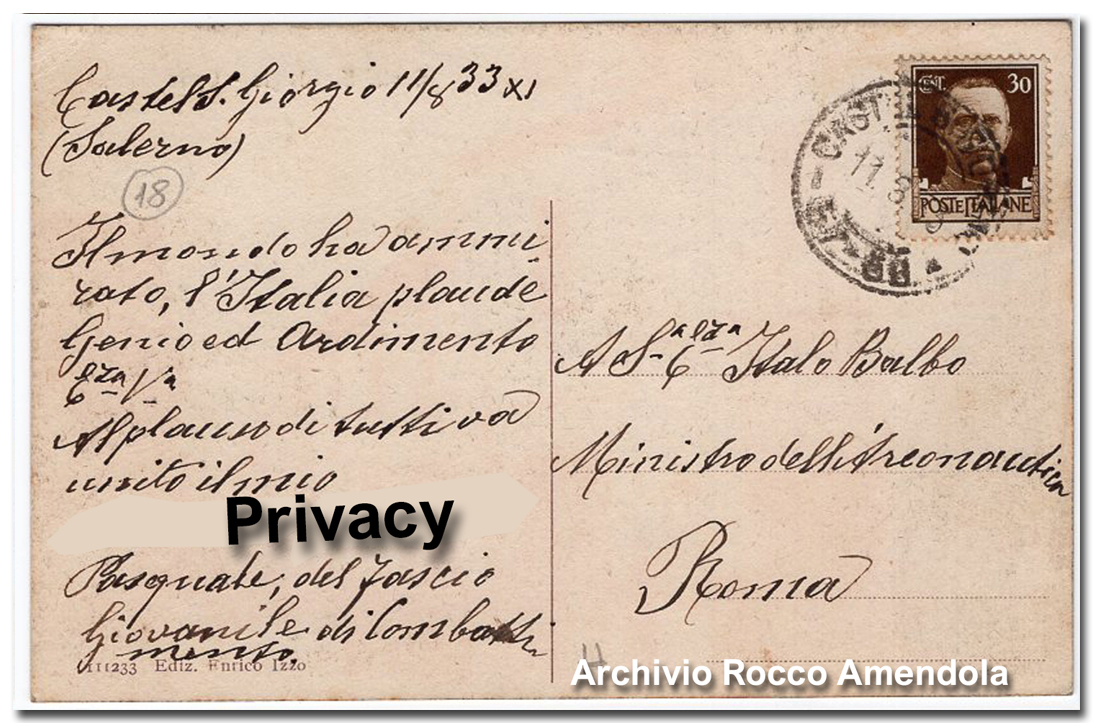 Castel S. Giorgio 11/8 33 XI
(Salerno)
18
Il mondo ha ammi-
rato, l'Italia plaude
Genio ed Ardimento
Ecza Va
Al plauso di tutti va
unito il mio
Privacy
Pasquale, del Fascio
Giovanile di Combatti
mento,
111233 Ediz. Enrico Izzo
CENT. 30
POSTE ITALIANE
CAST
11. 8
A Sa Ecza Italo Balbo
Ministro dell'Areonautica
Roma
H
Archivio Rocco Amendola